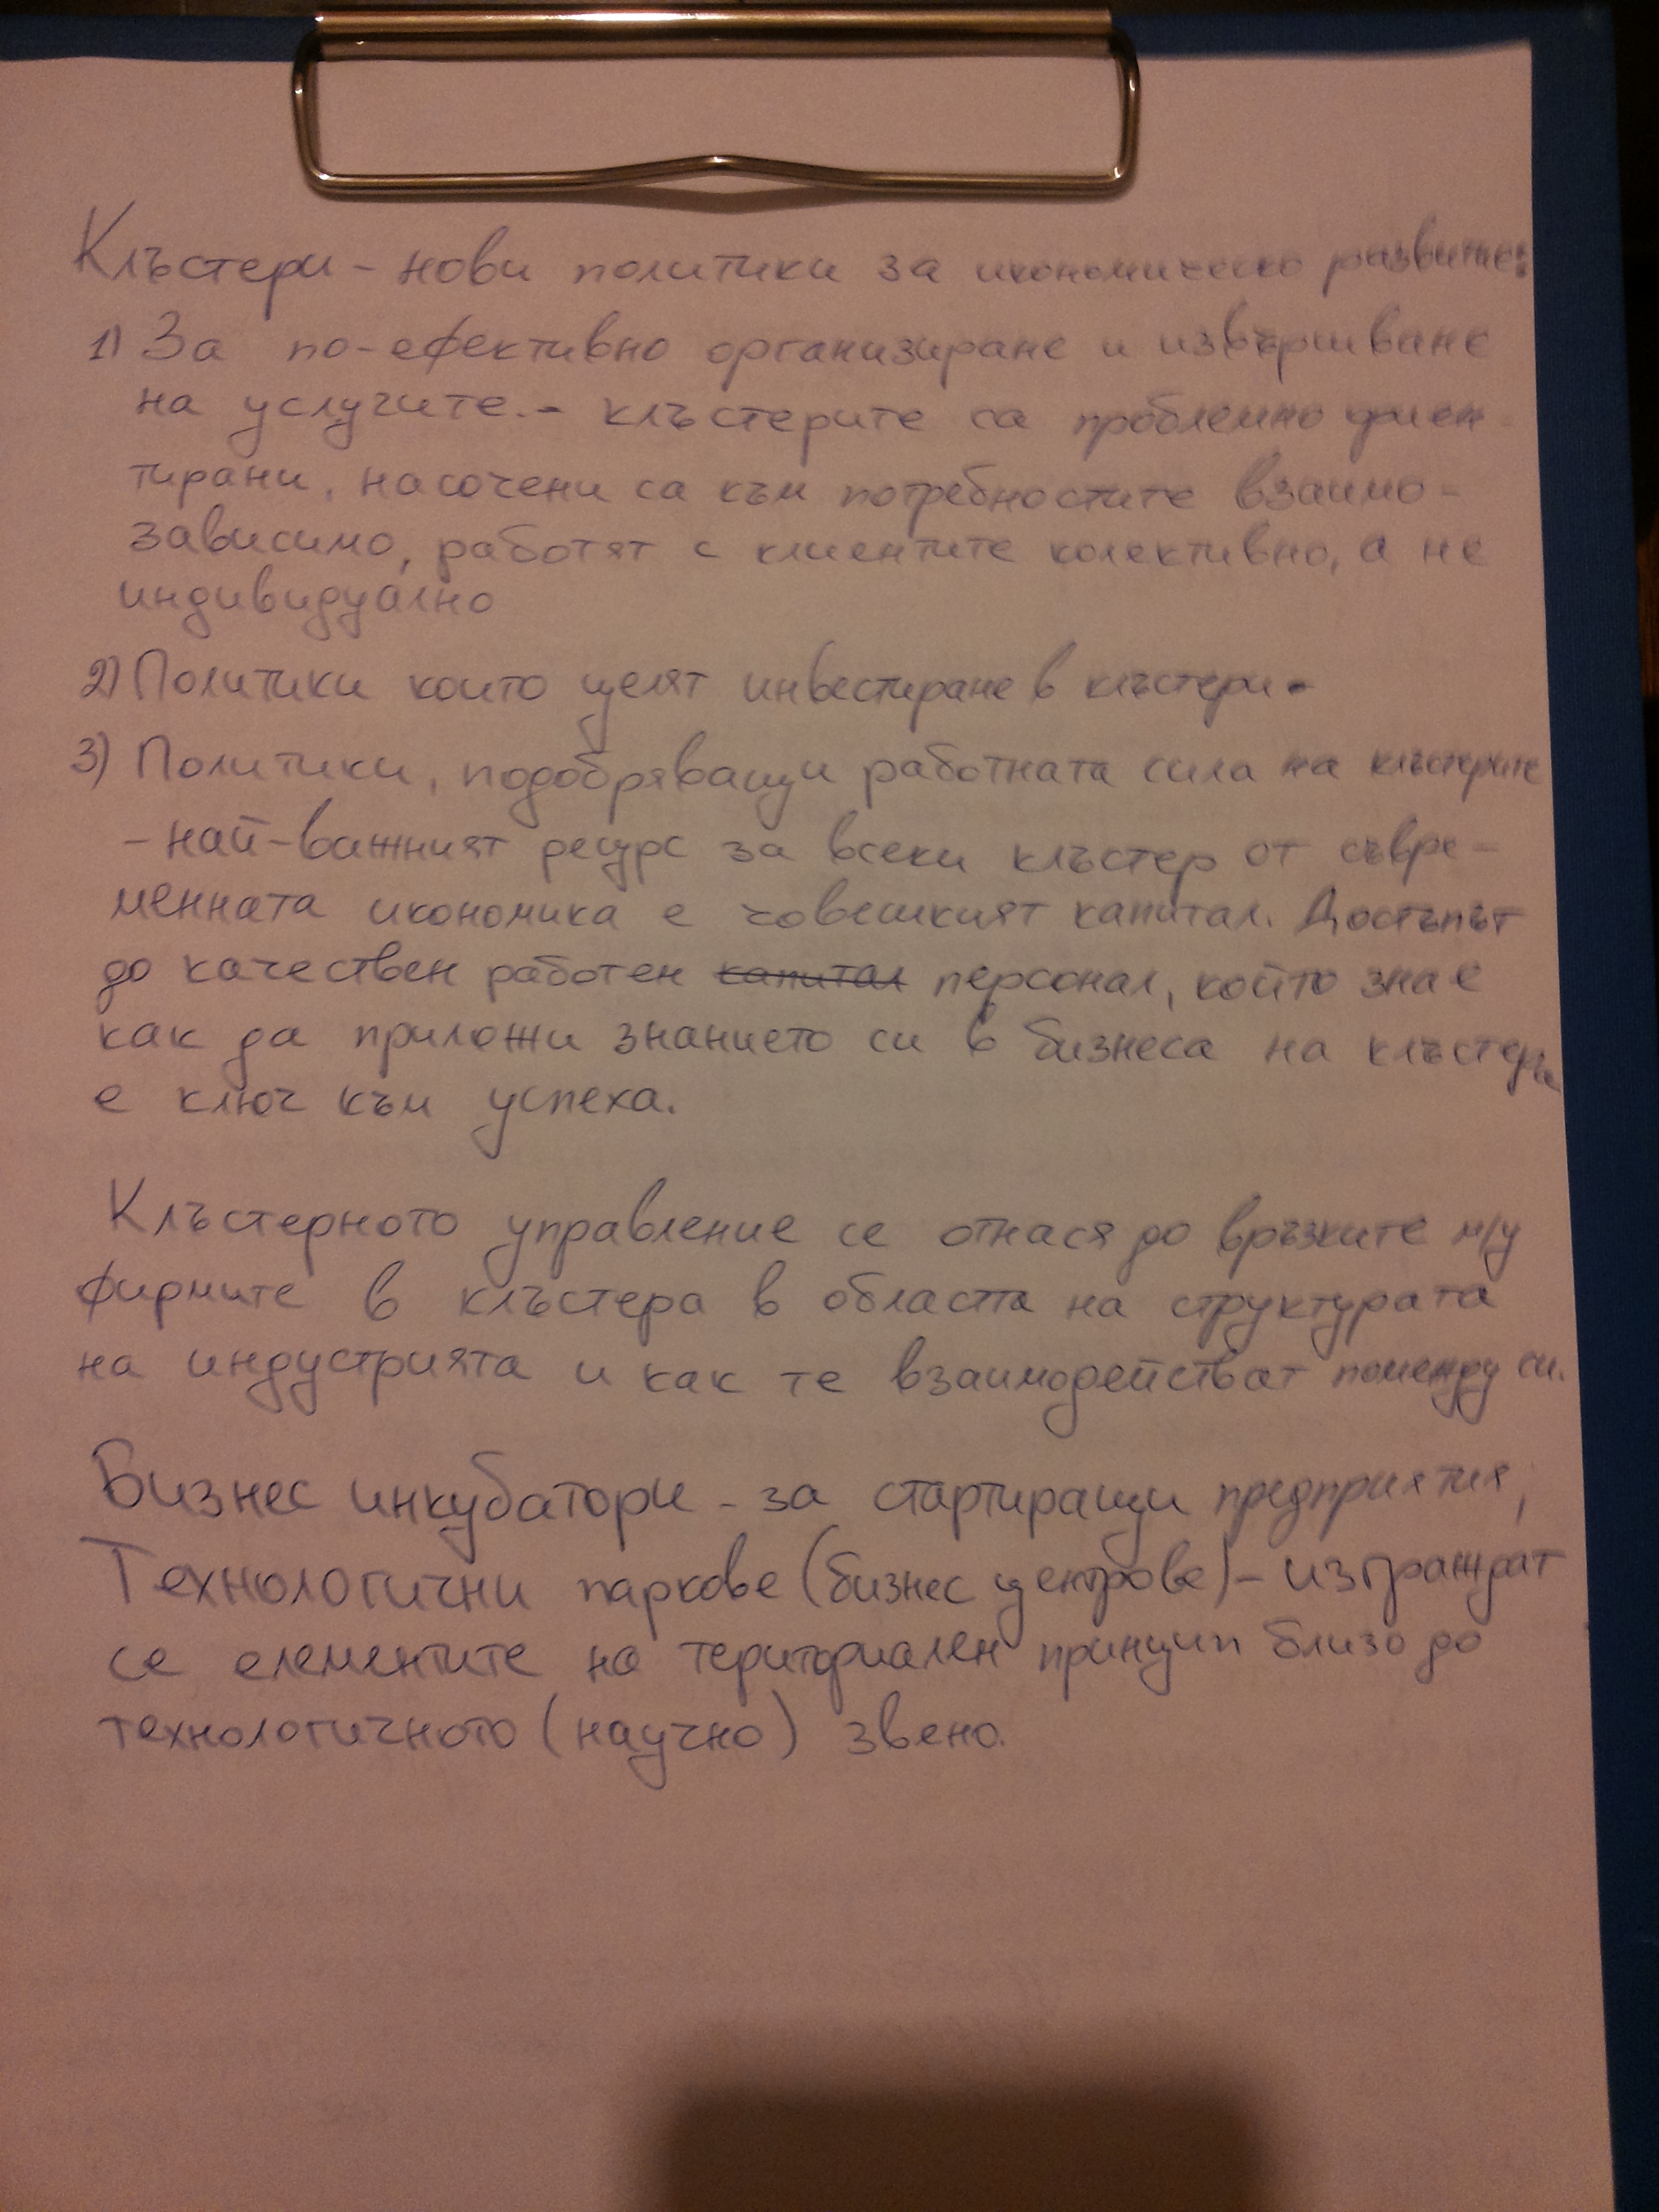 Клъстери – нови политики за икономическо развитие:
1) За по-ефективно организиране и извършване
на услугите. - клъстерите са проблемно ориен-
тирани, насочени са към потребностите взаимо-
зависимо, работят с клиентите колективно, а не
индивидуално
2) Политики които целят инвестиране в клъстери.
3) Политики, подобряващи работната сила на клъстерите
- най-важният ресурс за всеки клъстер от съвре-
менната икономика е човешкият капитал. Достъпът
до качествен работен капитал персонал, който знае
как да приложи знанието си в бизнеса на клъстера
е ключ към успеха.
Клъстерното управление се отнася до връзките м/у
фирмите в клъстера в областта на структурата
на индустрията и как те взаимодействат помежду си.
Бизнес инкубатори - за стартиращи предприятия;
Технологични паркове (бизнес центрове) - изграждат
се елементите на териториален принцип близо до
технологичното (научно) звено.